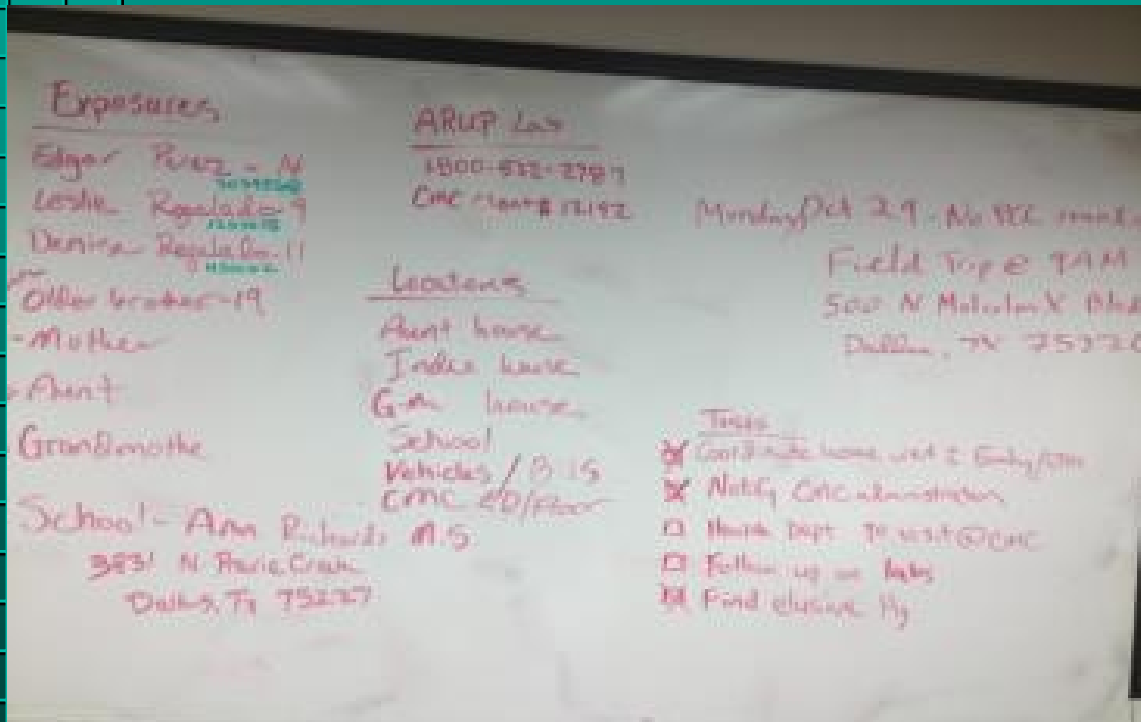 Exposures
Edgar - 14
Leslie Regalado - 9
Denise Regalado - 11
Older brother - 19
- Mother
- Aunt
Grandmothe
School - Ann Richards M.S
N Prairie Creek
Dallas, Tx 75227
ARUP Lab
1800-522-2787
CMC 12192
Locations
Aunt house
Index house
G-m house
School
Vehicles /
CMC ED/Floor
Monday Oct 29 - No
Field Trip @ 9AM
N Malcolm X Blvd
Dallas, TX
Tasks
Coordinate home visit
Notify CMC administration
Health Dept to visit @ CMC
Follow up on labs
Find elusive Hg